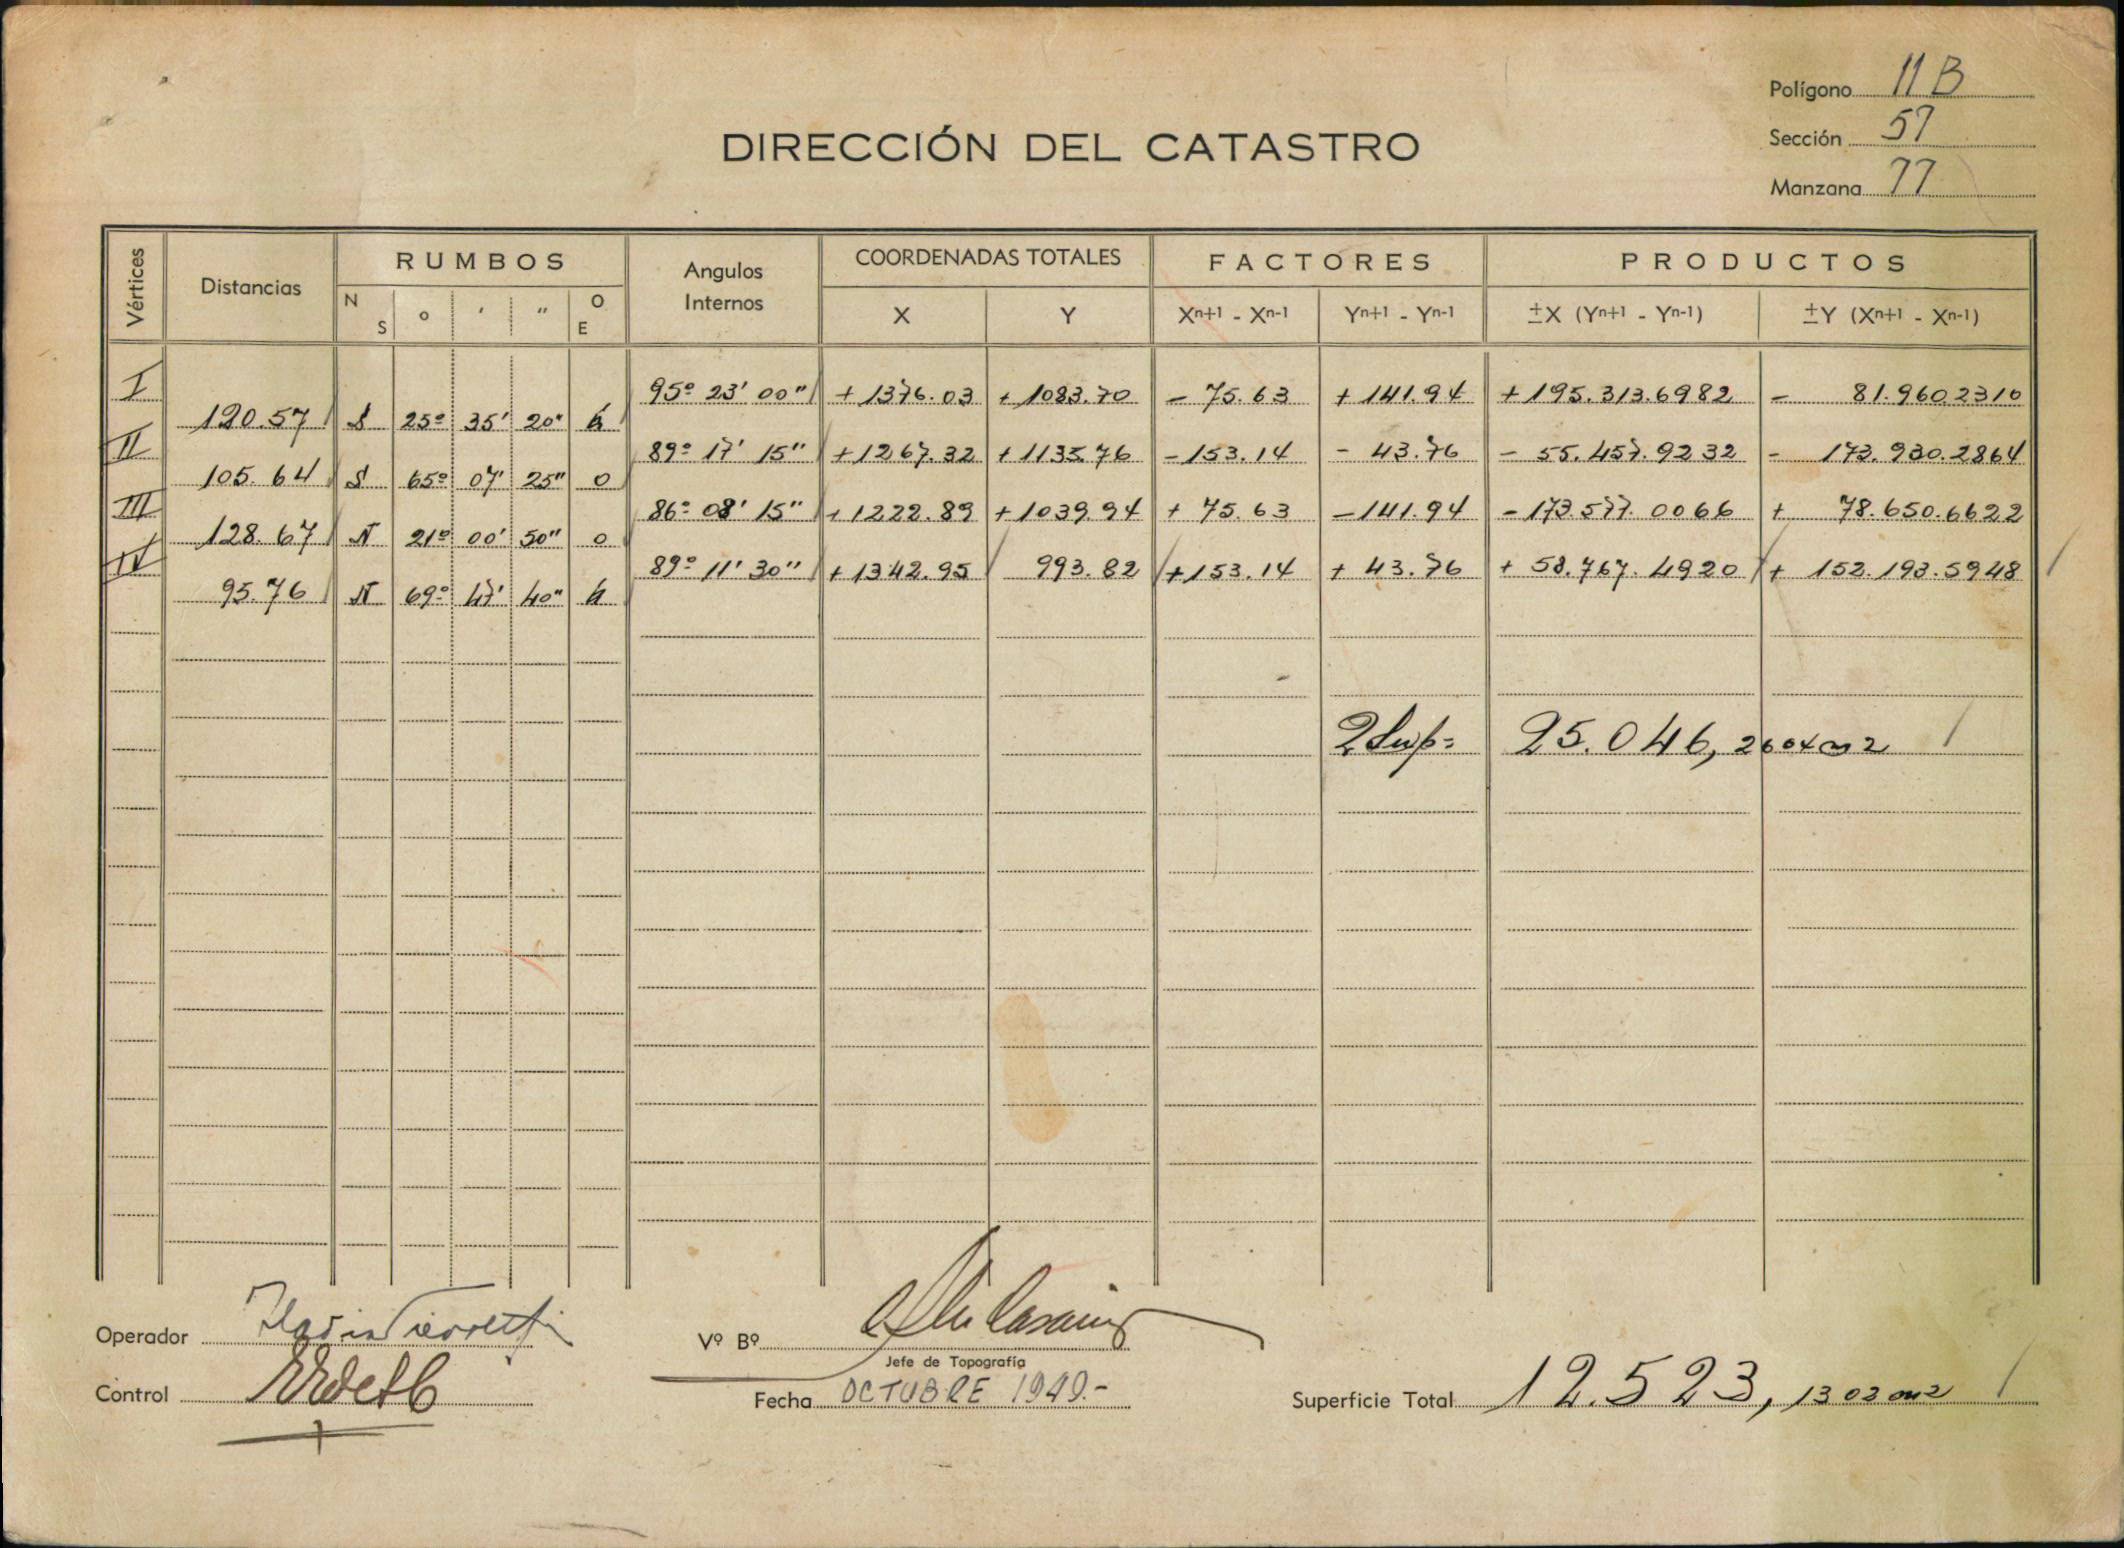 Polígono 11 B
Sección 57
Manzana 77
DIRECCIÓN DEL CATASTRO
Vértices Distancias RUMBOS Angulos Internos COORDENADAS TOTALES FACTORES PRODUCTOS
N S ° ' " O E X Y Xn+1 - Xn-1 Yn+1 - Yn-1 ±X (Yn+1 - Yn-1) ±Y (Xn+1 - Xn-1)
I 95º 23' 00" + 1376.03 + 1083.70 - 75.63 + 141.94 + 195.313.6982 - 81.960.2310
120.57 S 25º 35' 20" E
II 89º 17' 15" + 1267.32 + 1135.76 - 153.14 - 43.76 - 55.457.9232 - 173.930.2864
105.64 S 65º 07' 25" O
III 86º 08' 15" + 1222.89 + 1039.94 + 75.63 - 141.94 - 173.577.0066 + 78.650.6622
128.67 N 21º 00' 50" O
IV 89º 11' 30" + 1342.95 993.82 + 153.14 + 43.76 + 58.767.4920 + 152.193.5948
95.76 N 69º 47' 40" E
2 Sup= 25.046,2604 m2
Operador
Vº Bº
Jefe de Topografía
Control
Fecha OCTUBRE 1949.-
Superficie Total 12.523,1302 m2